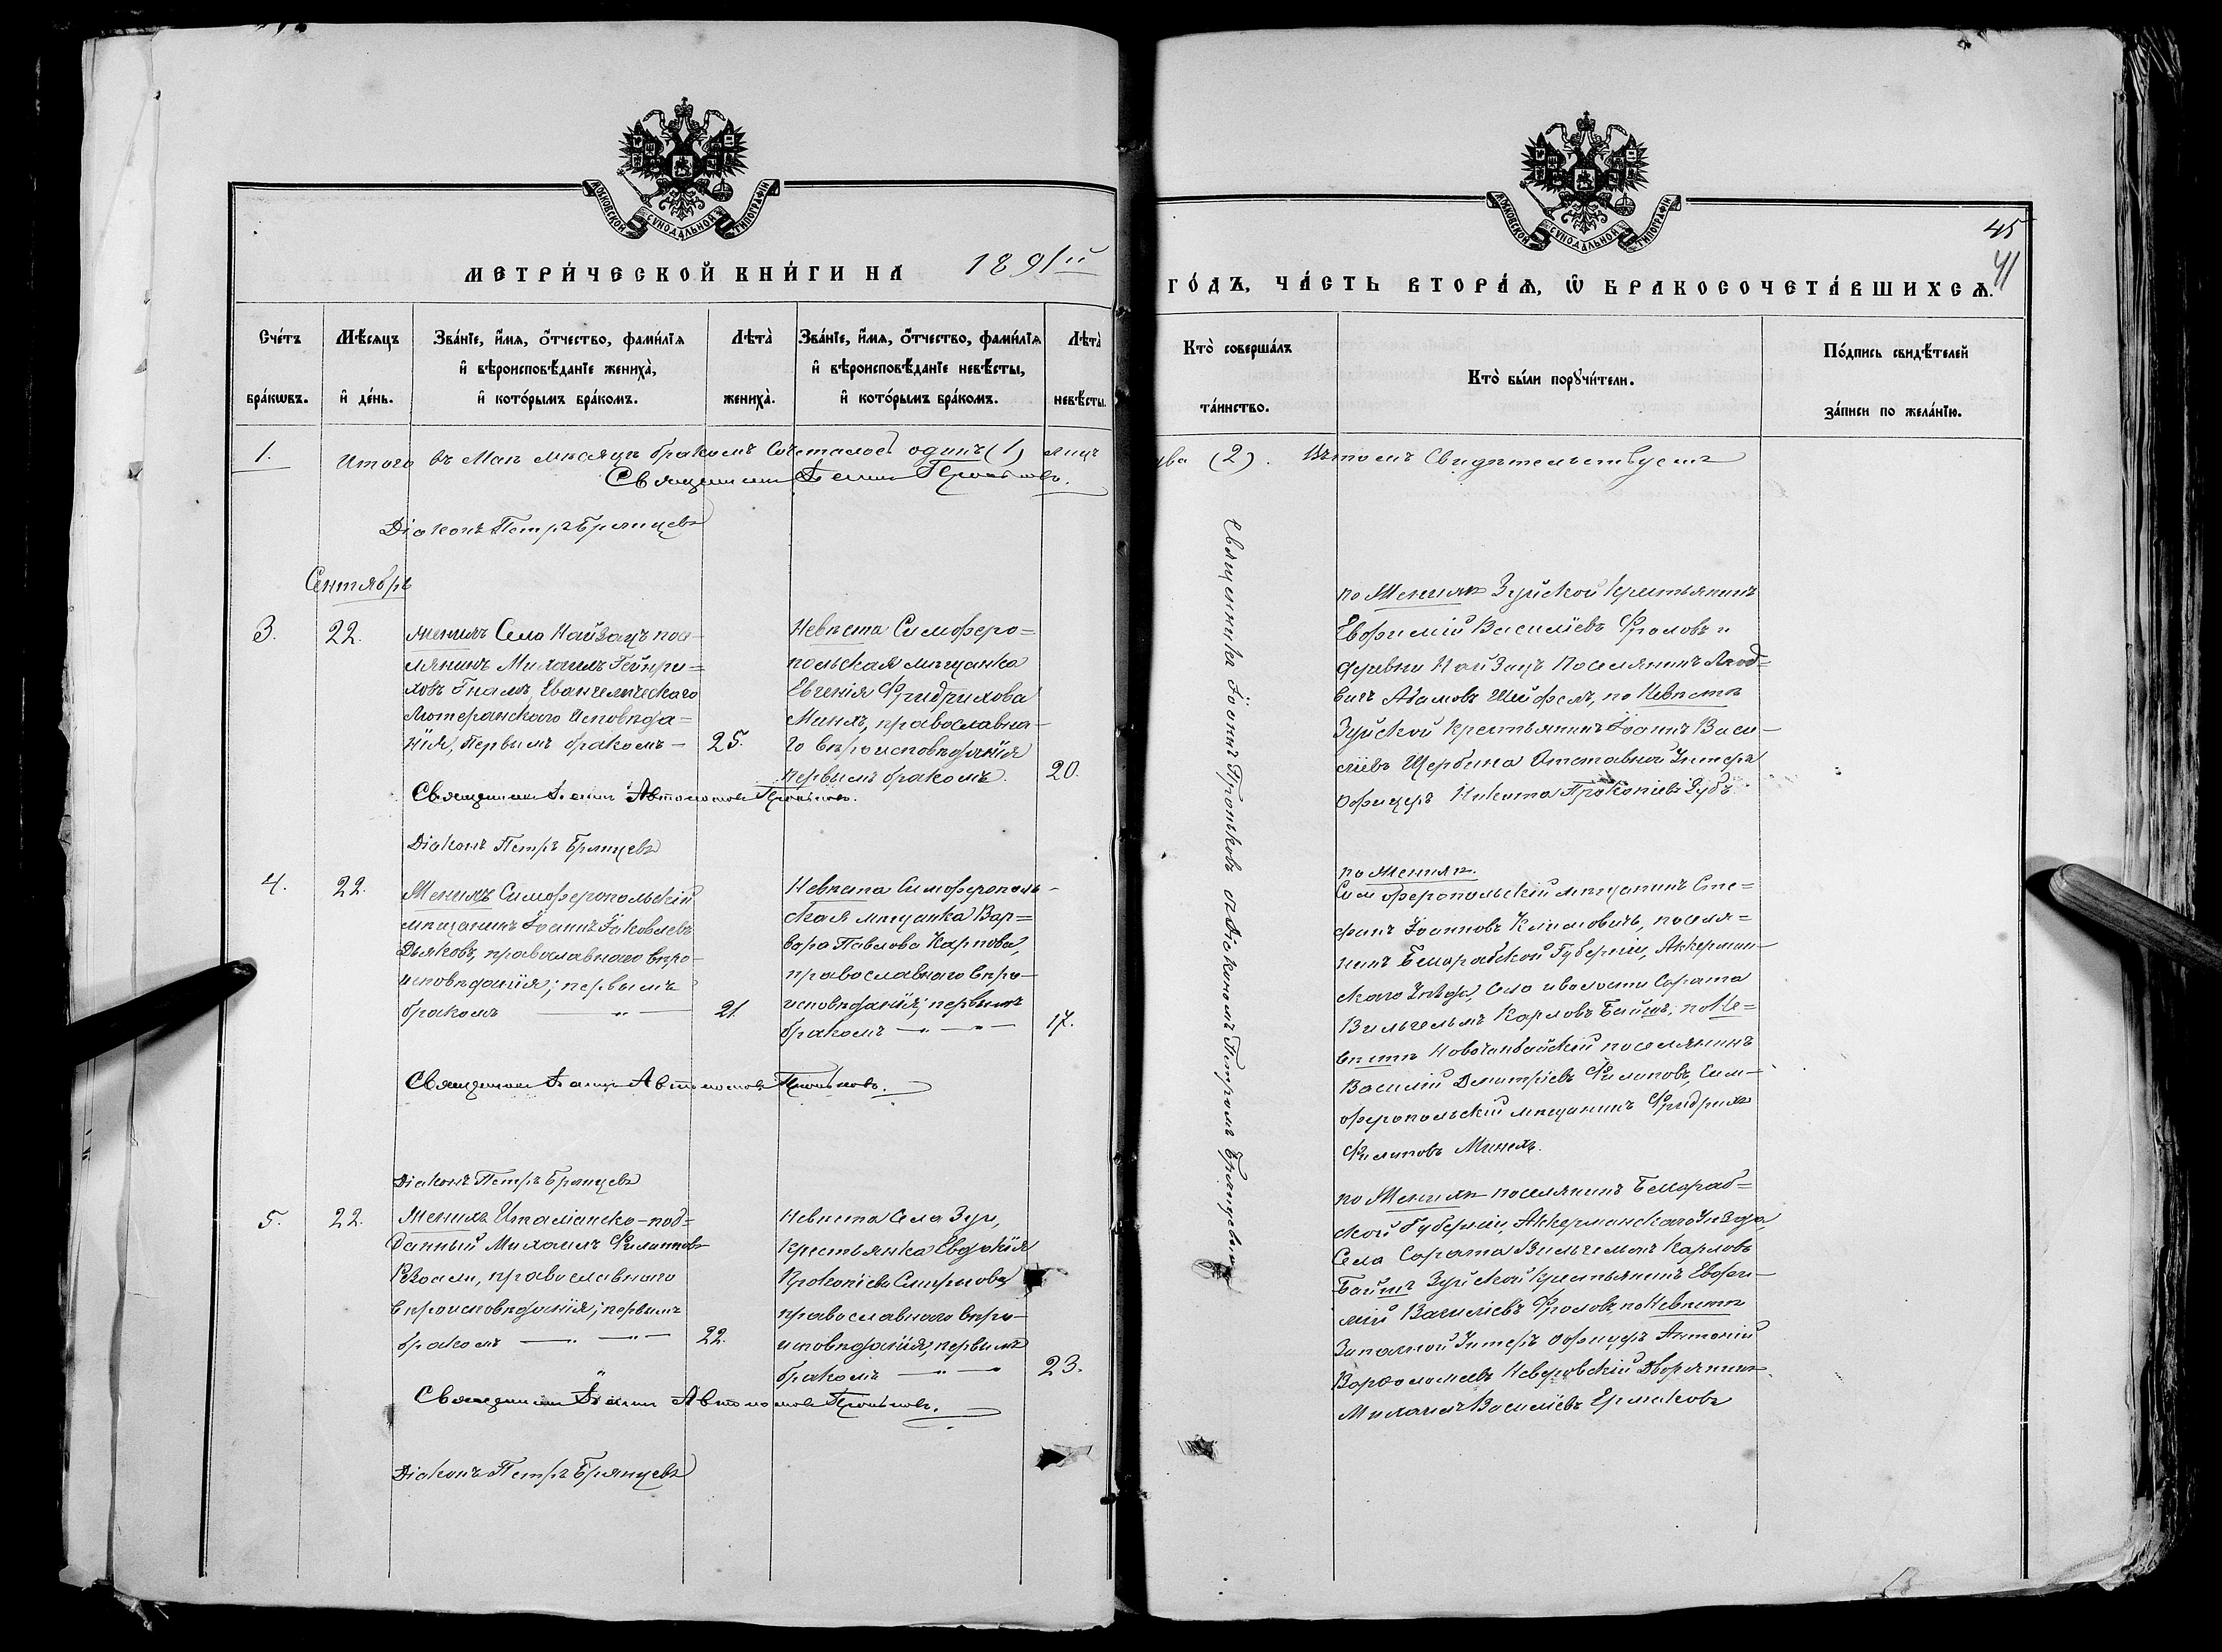 МОСКОВСКОЙ СѴНОДАЛЬНОЙ ТИПОГРАФІИ
МЕТРИ́ЧЕСКОЙ КНИ́ГИ НА 1891й
Сче́тъ бра́кѡвъ.
Мѣ́сяцъ и҆ де́нь.
Зва́нїе, и҆́мя, ѻ҆́тчество, фами́лїя
и҆ вѣроисповѣ́данїе жениха̀,
и҆ кото́рымъ бра́комъ.
Лѣта̀ жениха̀.
Зва́нїе, и҆́мя, ѻ҆́тчество, фами́лїя
и҆ вѣроисповѣ́данїе невѣ́сты,
и҆ кото́рымъ бра́комъ.
Лѣта̀ невѣ́сты.
1.
Итого въ Маѣ мѣсяцѣ бракомъ сочеталось одинъ (1) лицъ
Священникъ Іоаннъ Проньковъ.
Діаконъ Петръ Брянцевъ
Сентябрь
3.
22.
Женихъ Села Найзацъ посе-
лянинъ Михаилъ Гейнри=
ховъ Гнамъ, Евангелическаго
Лютеранскаго исповѣда=
нія, первымъ бракомъ —
25.
Невѣста Симферо=
польская мѣщанка
Евгенія Фридрихова
Минхъ, православна-
го вѣроисповѣданія
первымъ бракомъ.
20.
Священникъ Іоаннъ Автономовъ Проньковъ.
Діаконъ Петръ Брянцевъ
4.
22.
Женихъ Симферопольскій
мѣщанинъ Іоаннъ Іаковлевъ
Дьяковъ, православнаго вѣро-
исповѣданія; первымъ
бракомъ
21.
Невѣста Симферополь-
ская мѣщанка Вар=
вара Павлова Карпова,
православнаго вѣро-
исповѣданія; первымъ
бракомъ
17.
Священникъ Іоаннъ Автономовъ Проньковъ.
Діаконъ Петръ Брянцевъ
5.
22.
Женихъ Италіанско-под=
данный Михаилъ Филиповъ
православнаго
вѣроисповѣданія; первымъ
бракомъ
22.
Невѣста Села Зуи,
крестьянка Евдокія
Прокопіева Смирнова
православнаго вѣро-
исповѣданія; первымъ
бракомъ
23.
Священникъ Іоаннъ Автономовъ Проньковъ.
Діаконъ Петръ Брянцевъ
МОСКОВСКОЙ СѴНОДАЛЬНОЙ ТИПОГРАФІИ
45
41
ГО́ДЪ, ЧА́СТЬ ВТОРА́Я, Ѡ҆ БРАКОСОЧЕТА́ВШИХСЯ.
Кто̀ соверша́лъ та́инство.
Кто̀ бы́ли порꙋчи́тели.
По́дпись свидѣ́телей за́писи по жела́нїю.
два (2). Въ томъ свидѣтельствуемъ
Священникъ Іоаннъ Проньковъ съ Діакономъ Петромъ Брянцевымъ
по Женихѣ Зуйской крестьянинъ
Евфимій Василіевъ Фроловъ и
деревни Найзацъ поселянинъ Люд=
вигъ Адамовъ Шейфель, по Невѣстѣ
Зуйской крестьянинъ Іоаннъ Васи-
ліевъ Щербина Отставной Унтеръ
Офицеръ Никита Прокопіевъ Зубъ
по Женихѣ.
Симферопольскій мѣщанинъ Сте=
фанъ Іоанновъ Климовичъ, поселя=
нинъ Бессарабской Губерніи, Аккерман-
скаго Уѣзда, села и волости Сарата
Вильгельмъ Карловъ Байшъ; по Не=
вѣстѣ поселянинъ
Василій Димитріевъ Филиповъ, Сим-
феропольскій мѣщанинъ Фридрихъ
Филиповъ Минхъ.
по Женихѣ поселянинъ Бессараб=
ской Губерніи, Аккерманскаго Уѣзда
Села Сарата Вильгельмъ Карловъ
Байшъ Зуйской крестьянинъ Евфи-
мій Василіевъ Фроловъ, по Невѣстѣ
Запасной Унтеръ Офицеръ Антоній
Варфоломеевъ Неверовскій Дворянинъ
Михаилъ Василіевъ Ермаковъ